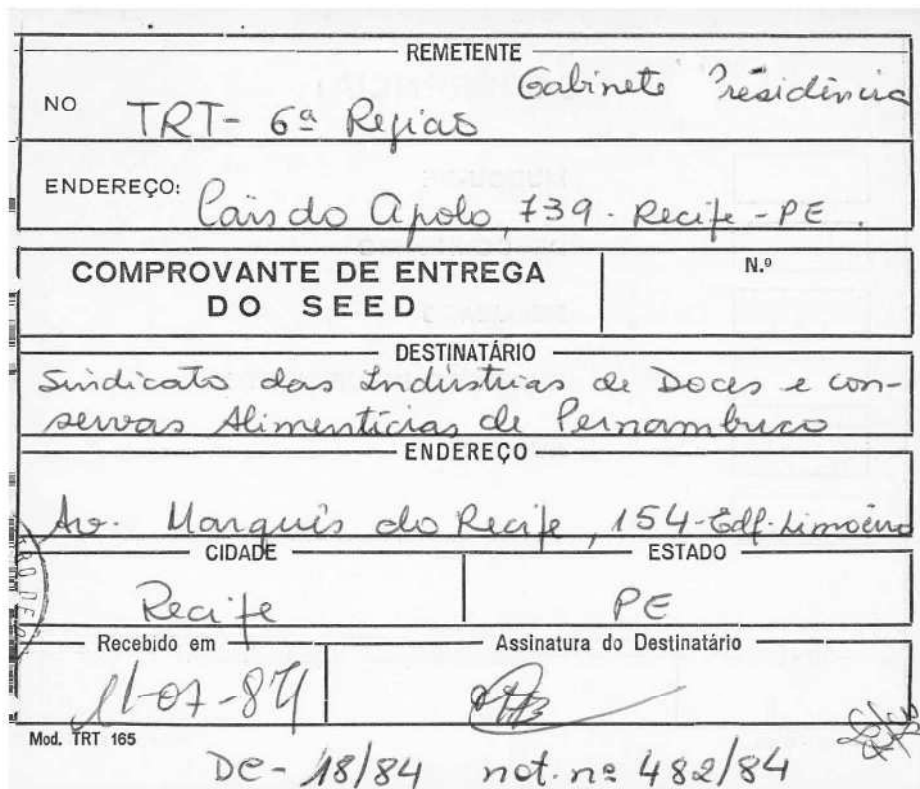 REMETENTE
Gabinete Presidência
NO TRT- 6ª Região
ENDEREÇO: Cais do Apolo, 739 - Recife - PE.
COMPROVANTE DE ENTREGA
DO SEED
N.º
DESTINATÁRIO
Sindicato das Indústrias de Doces e con-
servas Alimentícias de Pernambuco
ENDEREÇO
Av. Marquês do Recife, 154-Edf. Limoeiro
CIDADE
ESTADO
Recife
PE
Recebido em
Assinatura do Destinatário
11-07-84
Mod. TRT 165
DC- 18/84 not. nº 482/84